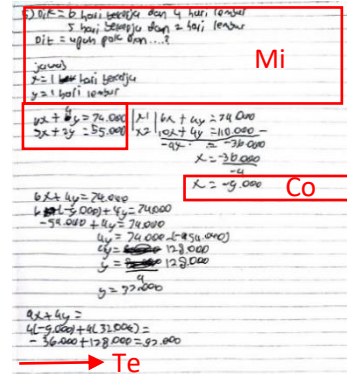 Dik = 6 hari bekerja dan 4 hari lembur
5 hari bekerja dan 2 hari lembur
Dit = upah pak dian....?
Mi
jawab
x = 1 hari bekerja
y = 1 hari lembur
6x + 4y = 74.000 |x1| 6x + 4y = 74.000
5x + 2y = 55.000 |x2| 10x + 4y = 110.000
= -36.000
x = -36.000
x = -9.000
Co
6x + 4y = 74.000
6 (-9.000) + 4y = 74.000
-54.000 + 4y = 74.000
4y = 74.000 -(-54.000)
4y = 128.000
y = 128.000
4
y = 32.000
4x + 4y =
4(-9.000) + 4(32.000) =
- 36.000 + 128.000 = 92.000
Te